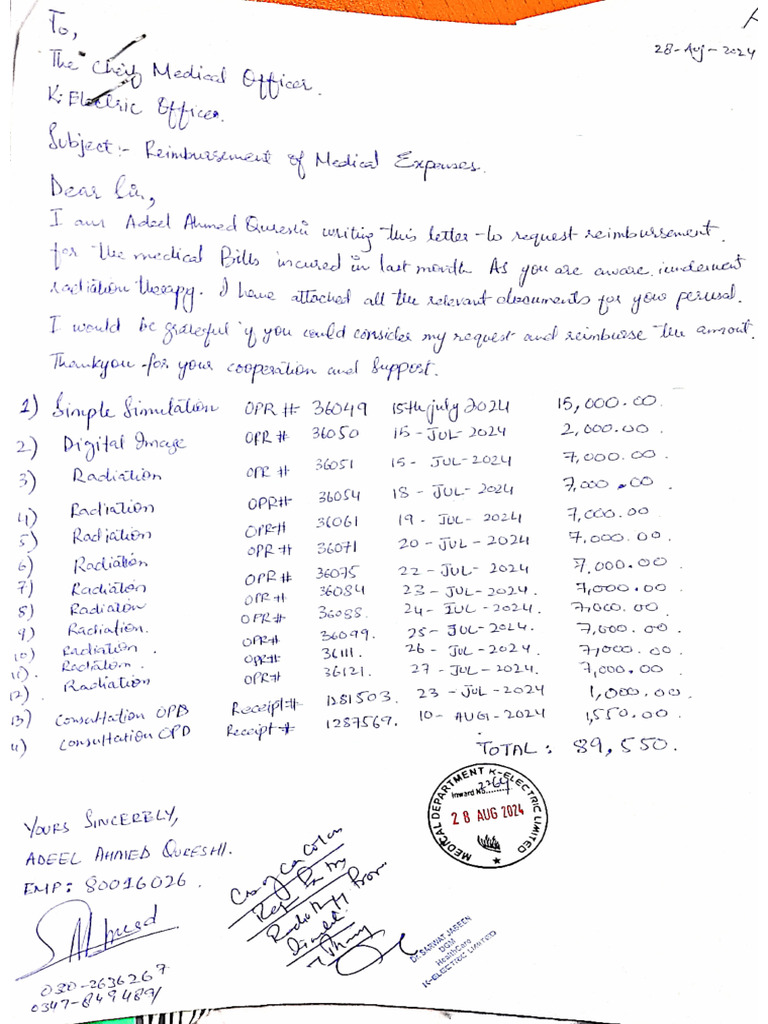 28-Aug-2024
To,
The Chief Medical Officer.
K. Electric Officer.
Subject:- Reimbursement of Medical Expenses.
Dear Sir,
I am Adeel Ahmed Qureshi writing this letter to request reimbursement
for the medical Bills incured in last month. As you are aware, i underwent
radiation therapy. I have attached all the relevant documents for your perusal.
I would be grateful if you could consider my request and reimburse the amount.
Thankyou for your cooperation and support.
1) Simple Simulation OPR # 36049 15th july 2024 15,000.00
2) Digital Image OPR # 36050 15-JUL-2024 2,000.00
3) Radiation OPR # 36051 15-JUL-2024 7,000.00
4) Radiation OPR# 36054 18-JUL-2024 7,000.00
5) Radiation OPR# 36061 19-JUL-2024 7,000.00
6) Radiation OPR # 36071 20-JUL-2024 7,000.00
7) Radiation OPR # 36075 22-JUL-2024 7,000.00
8) Radiation OPR # 36084 23-JUL-2024 7,000.00
9) Radiation. OPR # 36088. 24-JUL-2024. 7,000.00
10) Radiation. OPR# 36099. 25-JUL-2024. 7,000.00
11). Radiation. OPR# 36111. 26-JUL-2024. 7,000.00
12). Radiation OPR# 36121. 27-JUL-2024. 7,000.00
13) Consultation OPD Receipt# 1281503. 23-JUL-2024 1,000.00
Consultation OPD Receipt# 1287569. 10-AUG-2024 1,550.00
TOTAL: 89,550.
MEDICAL DEPARTMENT K-ELECTRIC LIMITED
Inward No.
28 AUG 2024
YOURS SINCERELY,
ADEEL AHMED QURESHI.
EMP: 80016026.
Dr. SARWAT JABEEN
DGM
HealthCare
K-ELECTRIC LIMITED
030-2636267